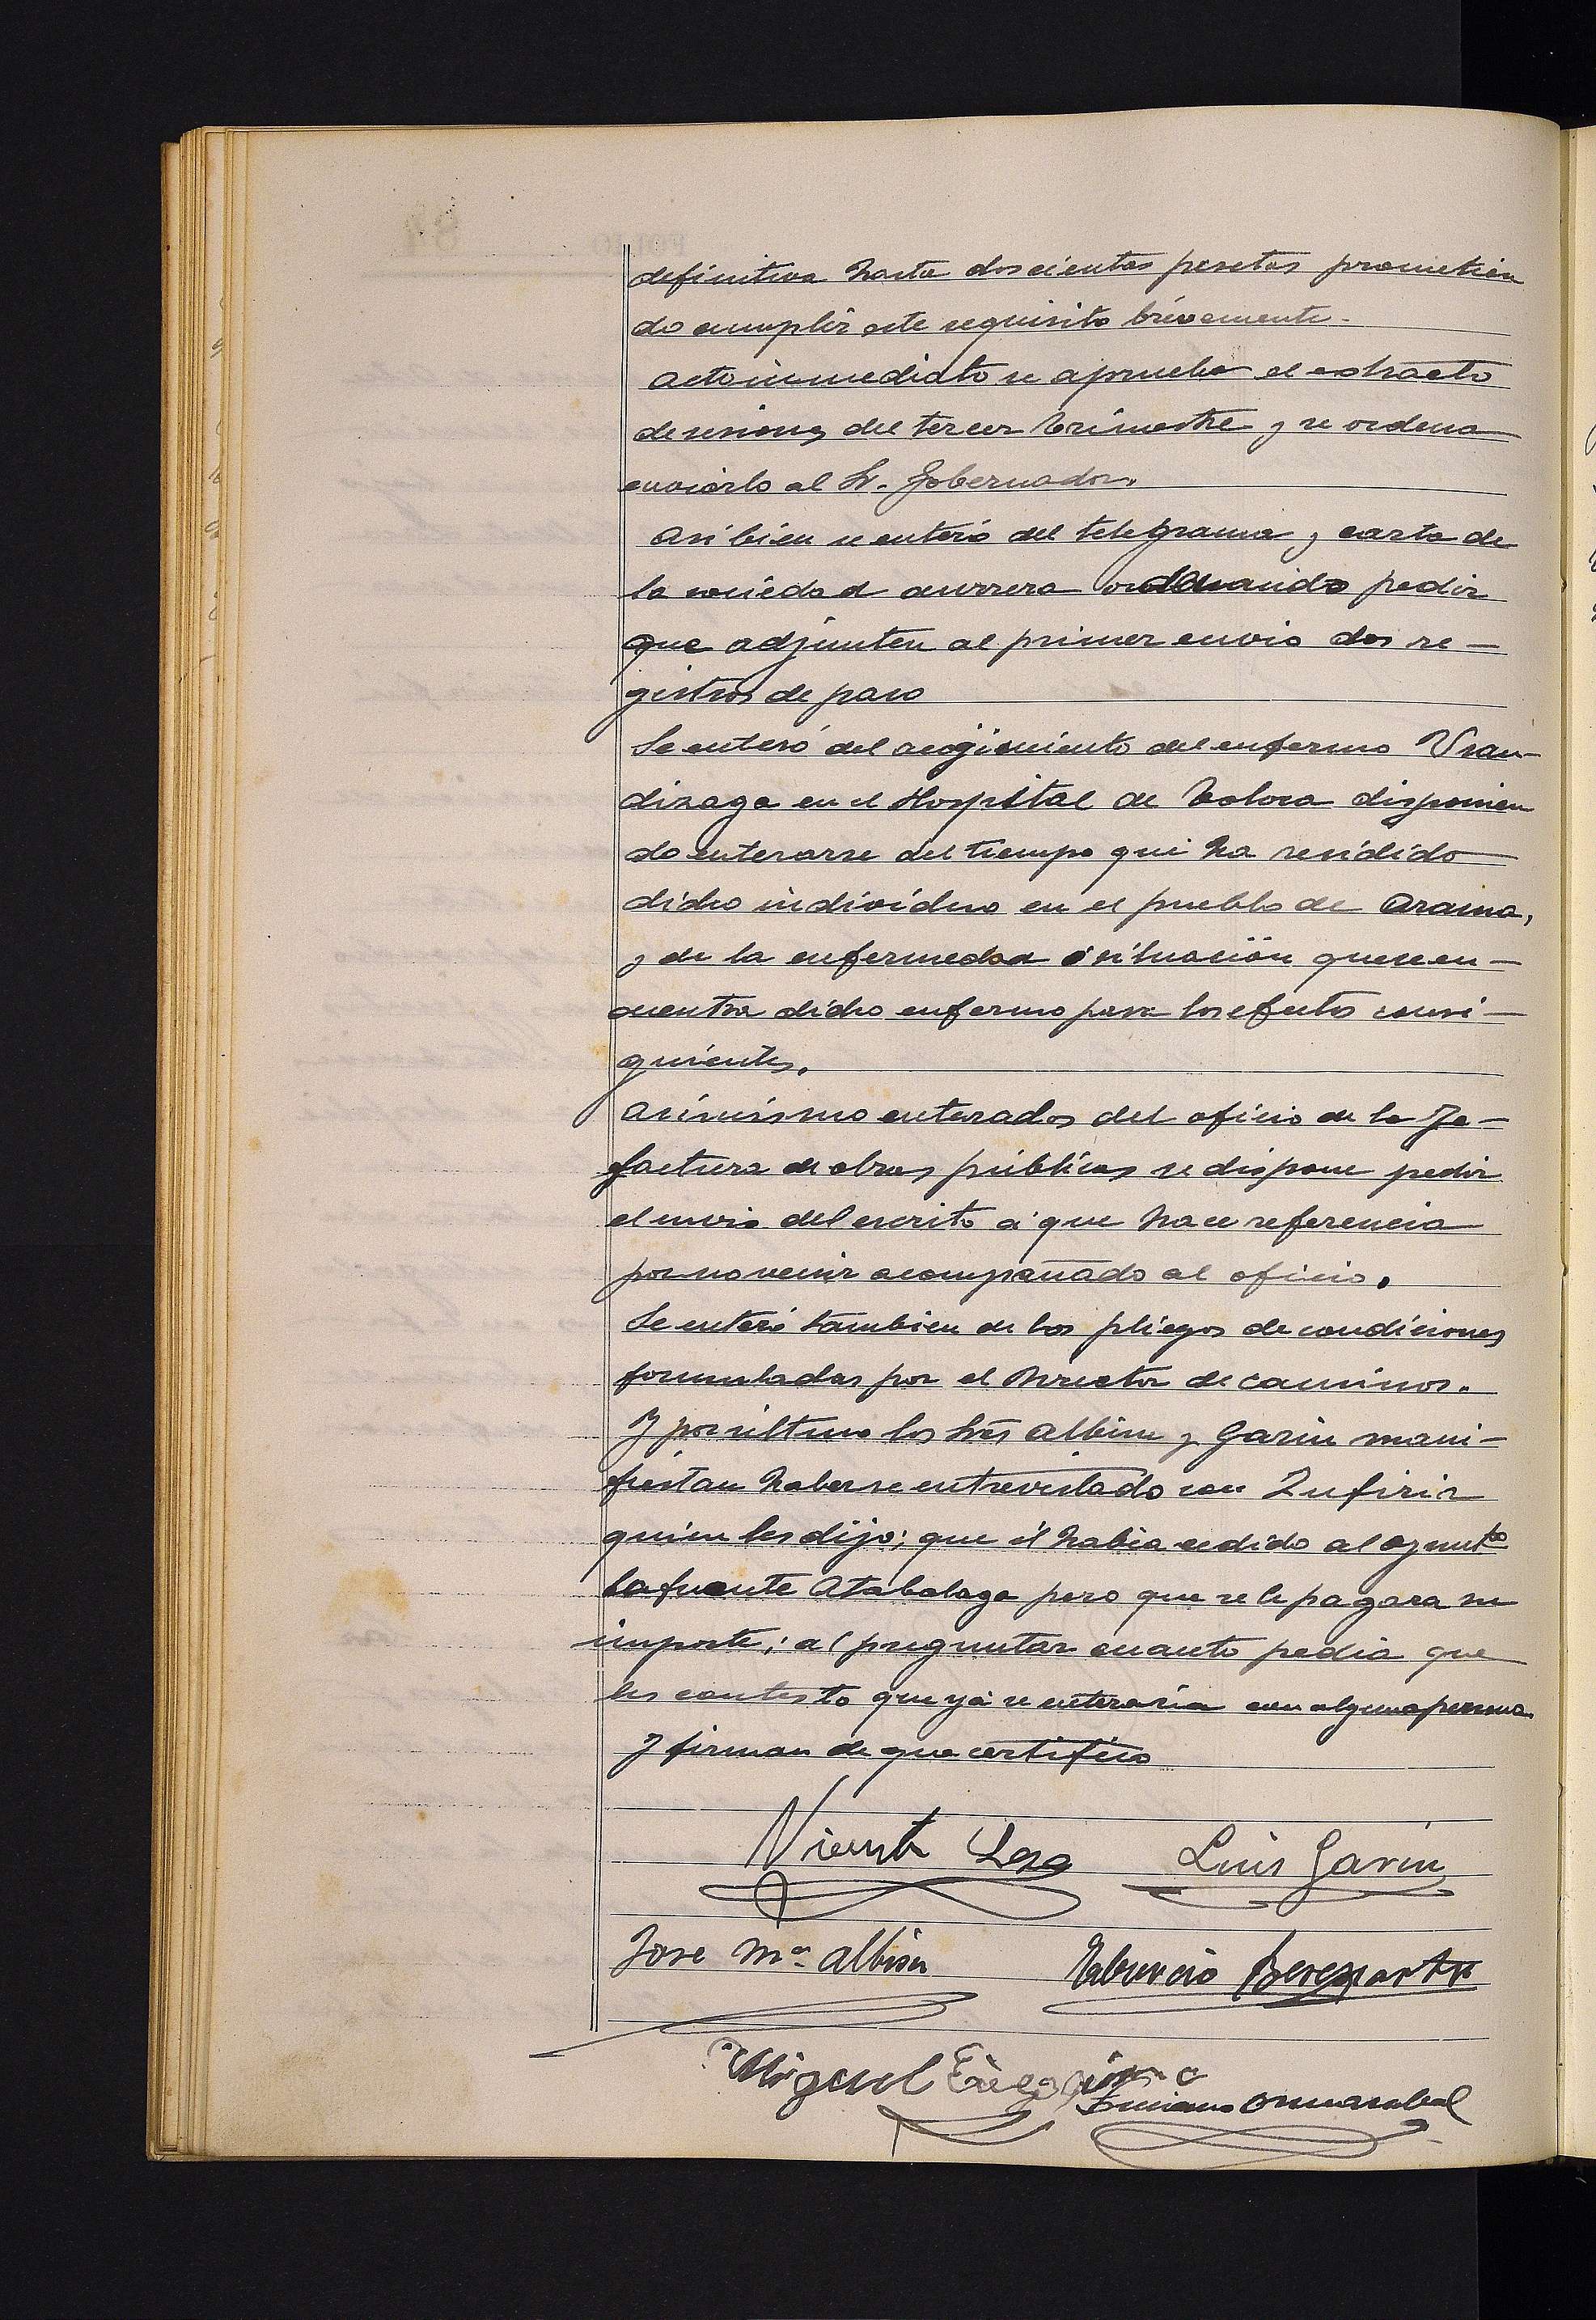 definitiva hasta doscientas pesetas prometien
do cumplir este requisito brévemente.
Acto inmediato se aprueba el extracto
de sesiones del tercer trimestre y se ordena
enviarlo al Sr. Gobernador.
Asi bien se enteró del telegrama y carta de
la sociedad aurrera ordenando pedir
que adjunten al primer envio dos re-
gistros de paso
Se enteró del acogimiento del enfermo Uran-
dizaga en el Hospital de Tolosa disponien
do enterarse del tiempo que ha residido
dicho individuo en el pueblo de Arama,
y de la enfermedad ó situación que se en-
cuentra dicho enfermo para los efectos consi-
guientes.
Asimismo enterados del oficio de la Je-
factura de obras públicas se dispone pedir
el envio del escrito á que hace referencia
por no venir acompañado al oficio.
Se enteró tambien de los pliegos de condiciones
formuladas por el Director de caminos.
Y por último los Srés Albisu y Garin mani-
fiestan haberse entrevistado con Zufiria
quien les dijo; que él habia cedido al ayuntº
la fuente Atabalaga pero que se le pagara su
importe; al preguntar cuanto pedia que
les contesto que yá se enteraria con alguna persona.
Y firman de que certifico
Vicente Lasa Luis Garin
Jose Mª Albisu Tiburcio Berezarta
Miguel